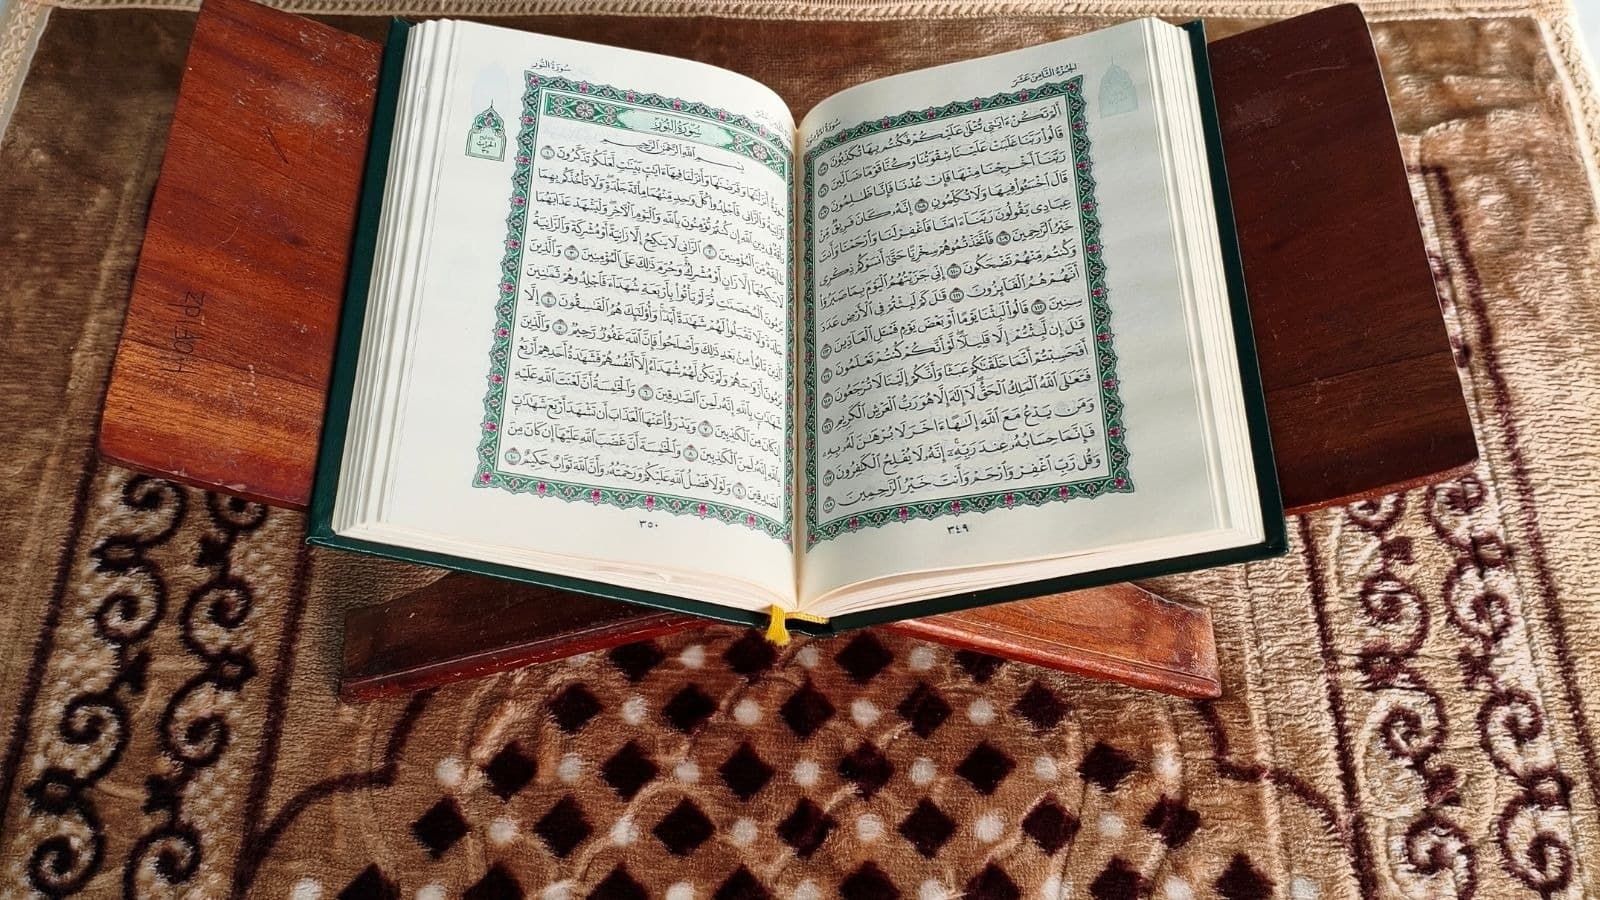 الجُزْءُ الثَّامِنَ عَشَرَ
أَلَمْ تَكُنْ ءَايَٰتِي تُتْلَىٰ عَلَيْكُمْ فَكُنتُم بِهَا تُكَذِّبُونَ ١٠٥
قَالُوا۟ رَبَّنَا غَلَبَتْ عَلَيْنَا شِقْوَتُنَا وَكُنَّا قَوْمًا ضَآلِّينَ ١٠٦
رَبَّنَآ أَخْرِجْنَا مِنْهَا فَإِنْ عُدْنَا فَإِنَّا ظَٰلِمُونَ ١٠٧
قَالَ ٱخْسَـُٔوا۟ فِيهَا وَلَا تُكَلِّمُونِ ١٠٨ إِنَّهُۥ كَانَ فَرِيقٌ مِّنْ
عِبَادِي يَقُولُونَ رَبَّنَآ ءَامَنَّا فَٱغْفِرْ لَنَا وَٱرْحَمْنَا وَأَنتَ
خَيْرُ ٱلرَّٰحِمِينَ ١٠٩ فَٱتَّخَذْتُمُوهُمْ سِخْرِيًّا حَتَّىٰٓ أَنسَوْكُمْ ذِكْرِي
وَكُنتُم مِّنْهُمْ تَضْحَكُونَ ١١٠ إِنِّي جَزَيْتُهُمُ ٱلْيَوْمَ بِمَا صَبَرُوٓا۟
أَنَّهُمْ هُمُ ٱلْفَآئِزُونَ ١١١ قَٰلَ كَمْ لَبِثْتُمْ فِي ٱلْأَرْضِ عَدَدَ
سِنِينَ ١١٢ قَالُوا۟ لَبِثْنَا يَوْمًا أَوْ بَعْضَ يَوْمٍ فَسْـَٔلِ ٱلْعَآدِّينَ ١١٣
قَٰلَ إِن لَّبِثْتُمْ إِلَّا قَلِيلًا لَّوْ أَنَّكُمْ كُنتُمْ تَعْلَمُونَ ١١٤
أَفَحَسِبْتُمْ أَنَّمَا خَلَقْنَٰكُمْ عَبَثًا وَأَنَّكُمْ إِلَيْنَا لَا تُرْجَعُونَ ١١٥
فَتَعَٰلَى ٱللَّهُ ٱلْمَلِكُ ٱلْحَقُّ لَآ إِلَٰهَ إِلَّا هُوَ رَبُّ ٱلْعَرْشِ ٱلْكَرِيمِ ١١٦
وَمَن يَدْعُ مَعَ ٱللَّهِ إِلَٰهًا ءَاخَرَ لَا بُرْهَٰنَ لَهُۥ بِهِۦ
فَإِنَّمَا حِسَابُهُۥ عِندَ رَبِّهِۦٓ إِنَّهُۥ لَا يُفْلِحُ ٱلْكَٰفِرُونَ ١١٧
وَقُل رَّبِّ ٱغْفِرْ وَٱرْحَمْ وَأَنتَ خَيْرُ ٱلرَّٰحِمِينَ ١١٨
٣٤٩
سُورَةُ النُّورِ
سُورَةُ النُّورِ
بِسْمِ ٱللَّهِ ٱلرَّحْمَٰنِ ٱلرَّحِيمِ
سُورَةٌ أَنزَلْنَٰهَا وَفَرَضْنَٰهَا وَأَنزَلْنَا فِيهَآ ءَايَٰتٍۭ بَيِّنَٰتٍ لَّعَلَّكُمْ تَذَكَّرُونَ ١
ٱلزَّانِيَةُ وَٱلزَّانِي فَٱجْلِدُوا۟ كُلَّ وَٰحِدٍ مِّنْهُمَا مِا۟ئَةَ جَلْدَةٍ وَلَا تَأْخُذْكُم بِهِمَا
رَأْفَةٌ فِي دِينِ ٱللَّهِ إِن كُنتُمْ تُؤْمِنُونَ بِٱللَّهِ وَٱلْيَوْمِ ٱلْءَاخِرِ وَلْيَشْهَدْ عَذَابَهُمَا
طَآئِفَةٌ مِّنَ ٱلْمُؤْمِنِينَ ٢ ٱلزَّانِي لَا يَنكِحُ إِلَّا زَانِيَةً أَوْ مُشْرِكَةً وَٱلزَّانِيَةُ
لَا يَنكِحُهَآ إِلَّا زَانٍ أَوْ مُشْرِكٌ وَحُرِّمَ ذَٰلِكَ عَلَى ٱلْمُؤْمِنِينَ ٣ وَٱلَّذِينَ
يَرْمُونَ ٱلْمُحْصَنَٰتِ ثُمَّ لَمْ يَأْتُوا۟ بِأَرْبَعَةِ شُهَدَآءَ فَٱجْلِدُوهُمْ ثَمَٰنِينَ
جَلْدَةً وَلَا تَقْبَلُوا۟ لَهُمْ شَهَٰدَةً أَبَدًا وَأُو۟لَٰٓئِكَ هُمُ ٱلْفَٰسِقُونَ ٤ إِلَّا
ٱلَّذِينَ تَابُوا۟ مِنۢ بَعْدِ ذَٰلِكَ وَأَصْلَحُوا۟ فَإِنَّ ٱللَّهَ غَفُورٌ رَّحِيمٌ ٥ وَٱلَّذِينَ
يَرْمُونَ أَزْوَٰجَهُمْ وَلَمْ يَكُن لَّهُمْ شُهَدَآءُ إِلَّآ أَنفُسُهُمْ فَشَهَٰدَةُ أَحَدِهِمْ أَرْبَعُ
شَهَٰدَٰتٍۭ بِٱللَّهِ إِنَّهُۥ لَمِنَ ٱلصَّٰدِقِينَ ٦ وَٱلْخَٰمِسَةُ أَنَّ لَعْنَتَ ٱللَّهِ عَلَيْهِ
إِن كَانَ مِنَ ٱلْكَٰذِبِينَ ٧ وَيَدْرَؤُا۟ عَنْهَا ٱلْعَذَابَ أَن تَشْهَدَ أَرْبَعَ شَهَٰدَٰتٍۭ
بِٱللَّهِ إِنَّهُۥ لَمِنَ ٱلْكَٰذِبِينَ ٨ وَٱلْخَٰمِسَةَ أَنَّ غَضَبَ ٱللَّهِ عَلَيْهَآ إِن كَانَ مِنَ
ٱلصَّٰدِقِينَ ٩ وَلَوْلَا فَضْلُ ٱللَّهِ عَلَيْكُمْ وَرَحْمَتُهُۥ وَأَنَّ ٱللَّهَ تَوَّابٌ حَكِيمٌ ١٠
٣٥٠